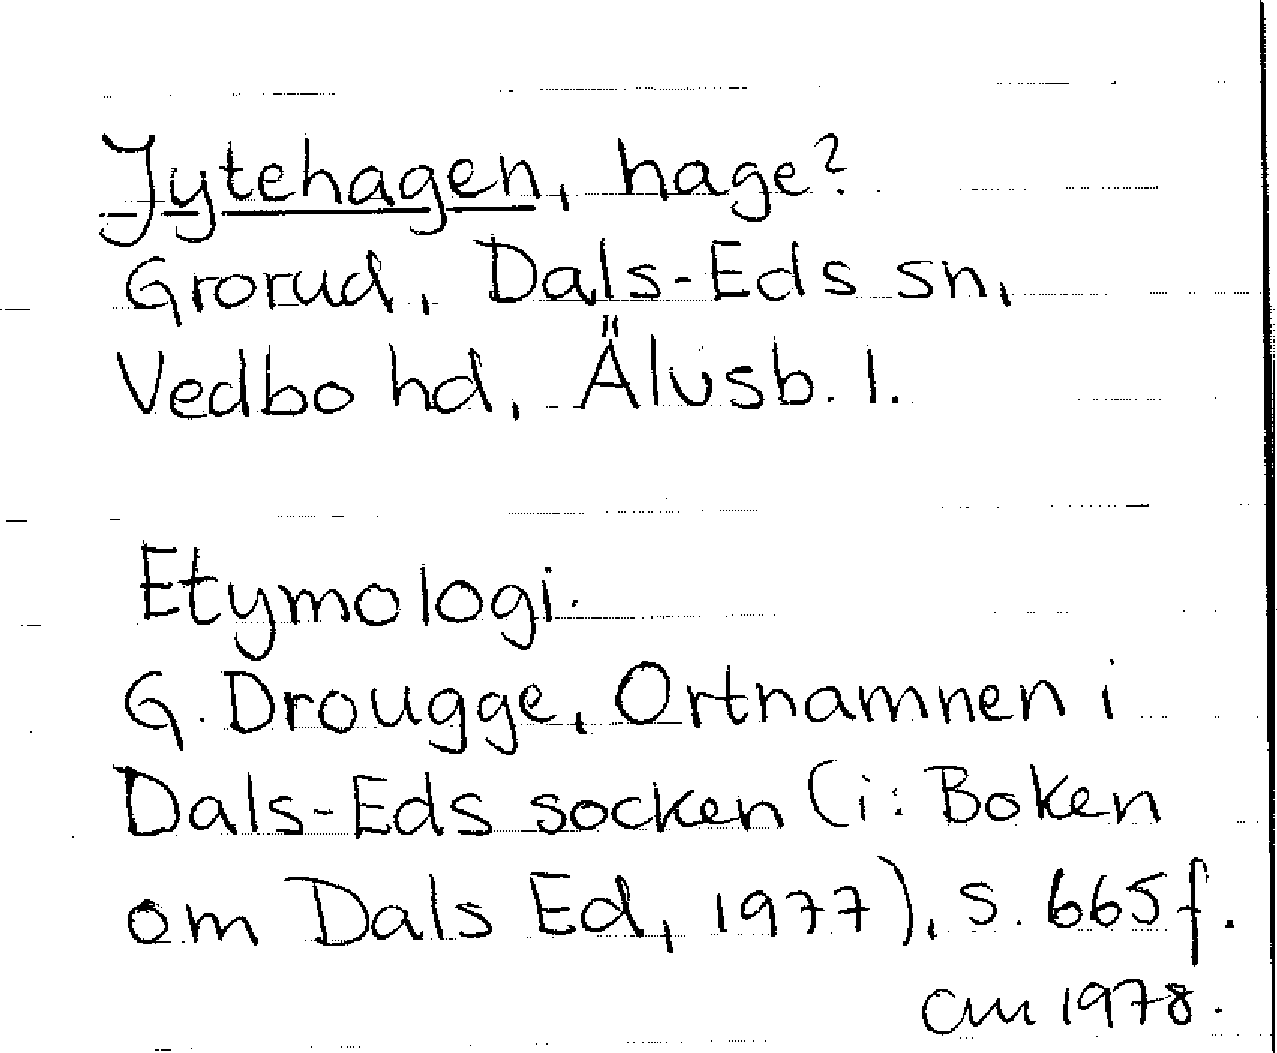 Jytehagen, hage?
Grorud, Dals-Eds sn,
Vedbo hd, Älvsb. l.
Etymologi.
G. Drougge, Ortnamnen i
Dals-Eds socken (i: Boken
om Dals Ed, 1977), s. 665 f.
CM 1978.